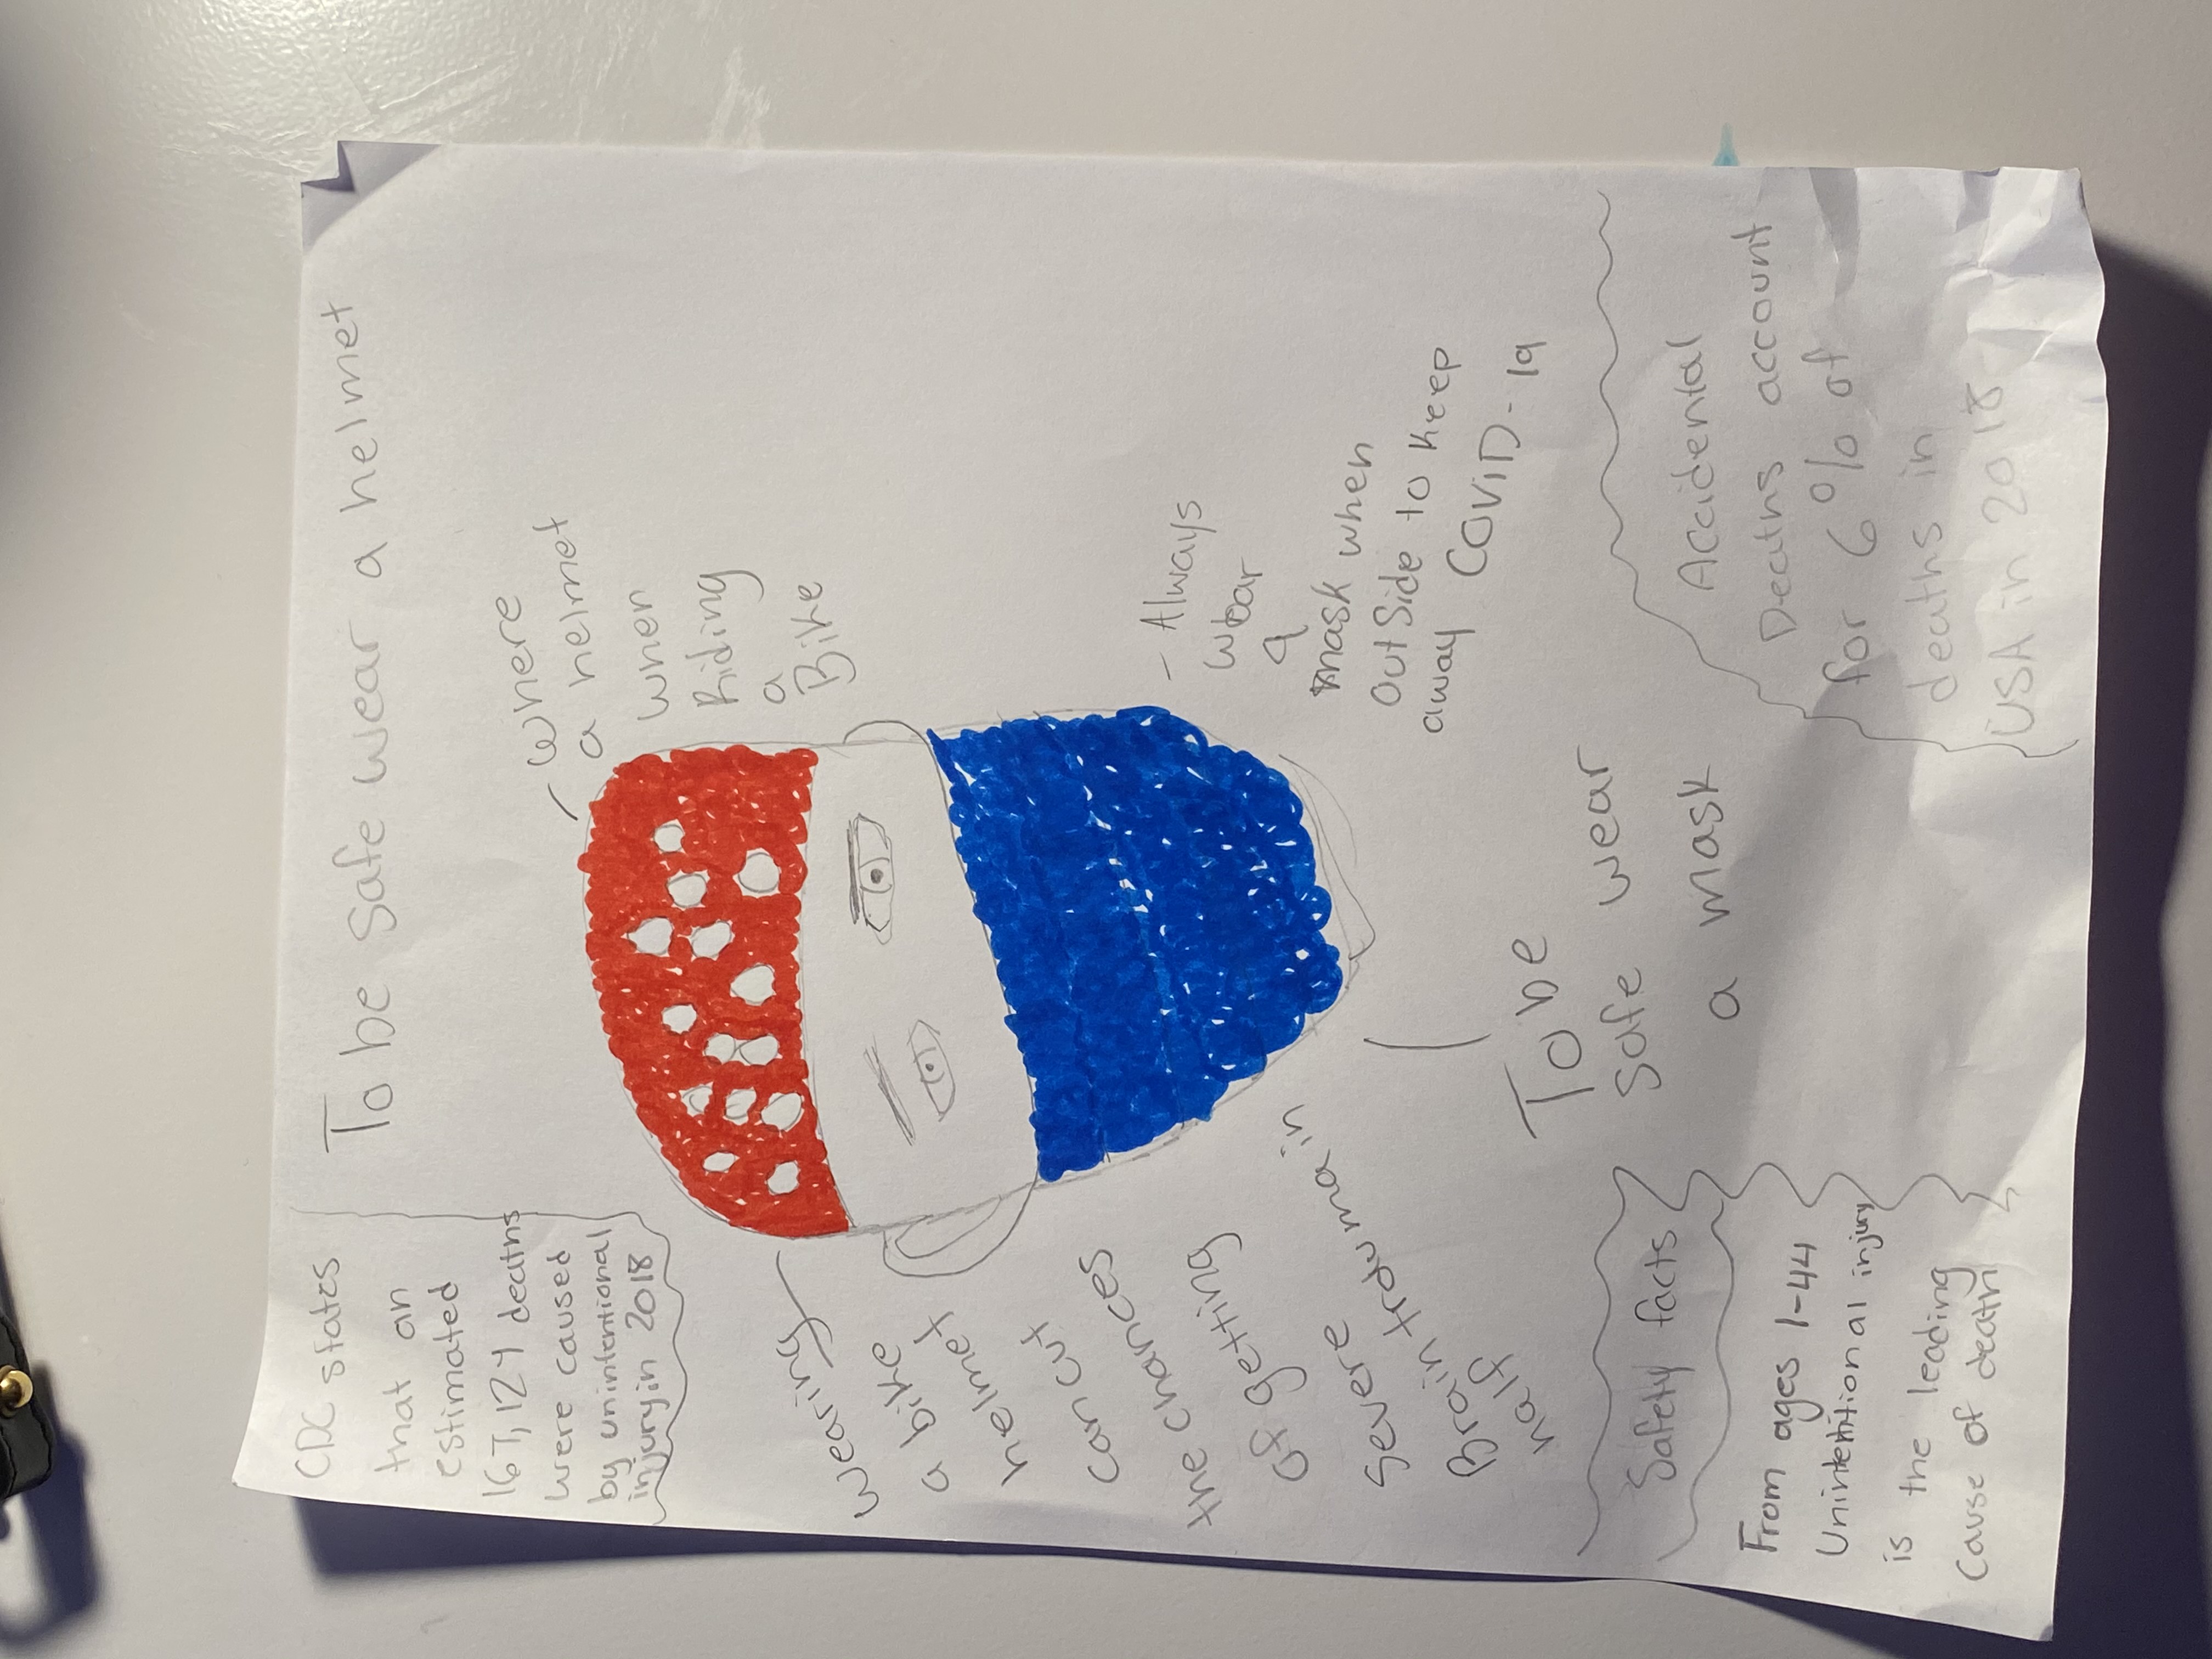 To be safe wear a helmet
CDC states
that an
estimated
167,127 deaths
were caused
by unintentional
injury in 2018
- Where
a helmet
when
Riding
a
Bike
wearing
a bike
helmet
can cut
the chances
of getting
severe
Brain trauma in
half
- Always
wear
a
mask when
outside to keep
away COVID-19
To be
safe wear
a mask
Safety facts
From ages 1-44
Unintentional injury
is the leading
cause of death
Accidental
Deaths account
for 6% of
deaths in
USA in 2018